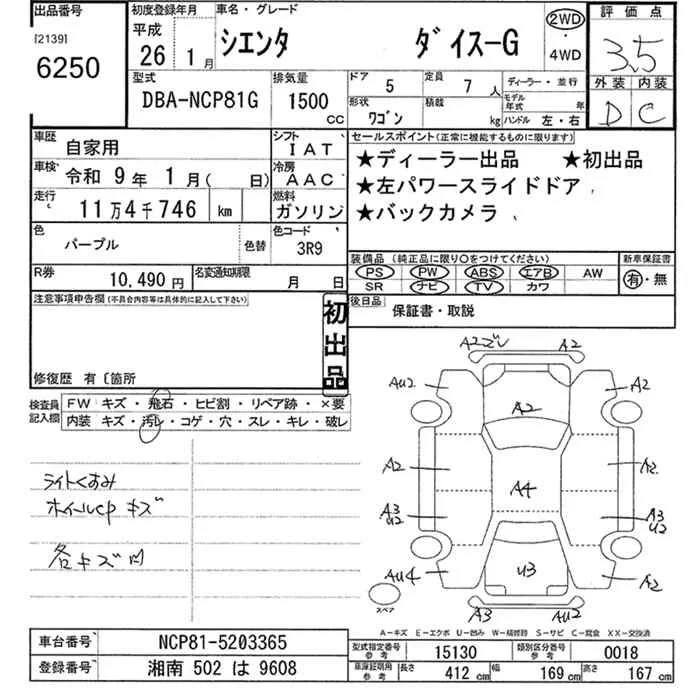 出品番号
[2139]
6250
初度登録年月
平成
26 年 1 月
車名・グレード
シエンタ ダイス-G
2WD
・
4WD
評価点
3.5
外装 内装
D C
型式
DBA-NCP81G
排気量
1500 CC
ドア 5
定員 7 人
形状 ワゴン
積載 kg
ディーラー・並行
モデル年式 年
ハンドル 左・右
車歴 自家用
シフト IAT
車検 令和 9 年 1 月( 日)
冷房 AAC
走行 11万4千746 km
燃料 ガソリン
色 パープル
色替
色コード 3R9
R券 10,490 円
名変通知期限 月 日
セールスポイント(正常に機能するものに限ります)
★ディーラー出品 ★初出品
★左パワースライドドア
★バックカメラ
装備品(純正品に限り○をつけてください)
新車保証書
PS PW ABS エアB AW
SR ナビ TV カワ
有・無
後日品 保証書・取説
注意事項申告欄(不具合内容等は具体的に記入して下さい)
初出品
修復歴 有〔箇所
検査員記入欄
FW キズ・飛石・ヒビ割・リペア跡・×要
内装 キズ・汚レ・コゲ・穴・スレ・キレ・破レ
ライトくすみ
ホイールcp キズ
各キズ凹
A2ズレ A2
AU2 A2
A2
A2 A2
A4
A3 A3
U2 U2
AU4 U3 A2
スペア
A3 AU2
A-キズ E-エクボ U-凹み W-補修跡 S-サビ C-腐食 XX-交換済
車台番号 NCP81-5203365
登録番号 湘南 502 は 9608
型式指定番号 参考 15130
類別区分番号 参考 0018
車庫証明用 参考 長さ 412 cm 幅 169 cm 高さ 167 cm